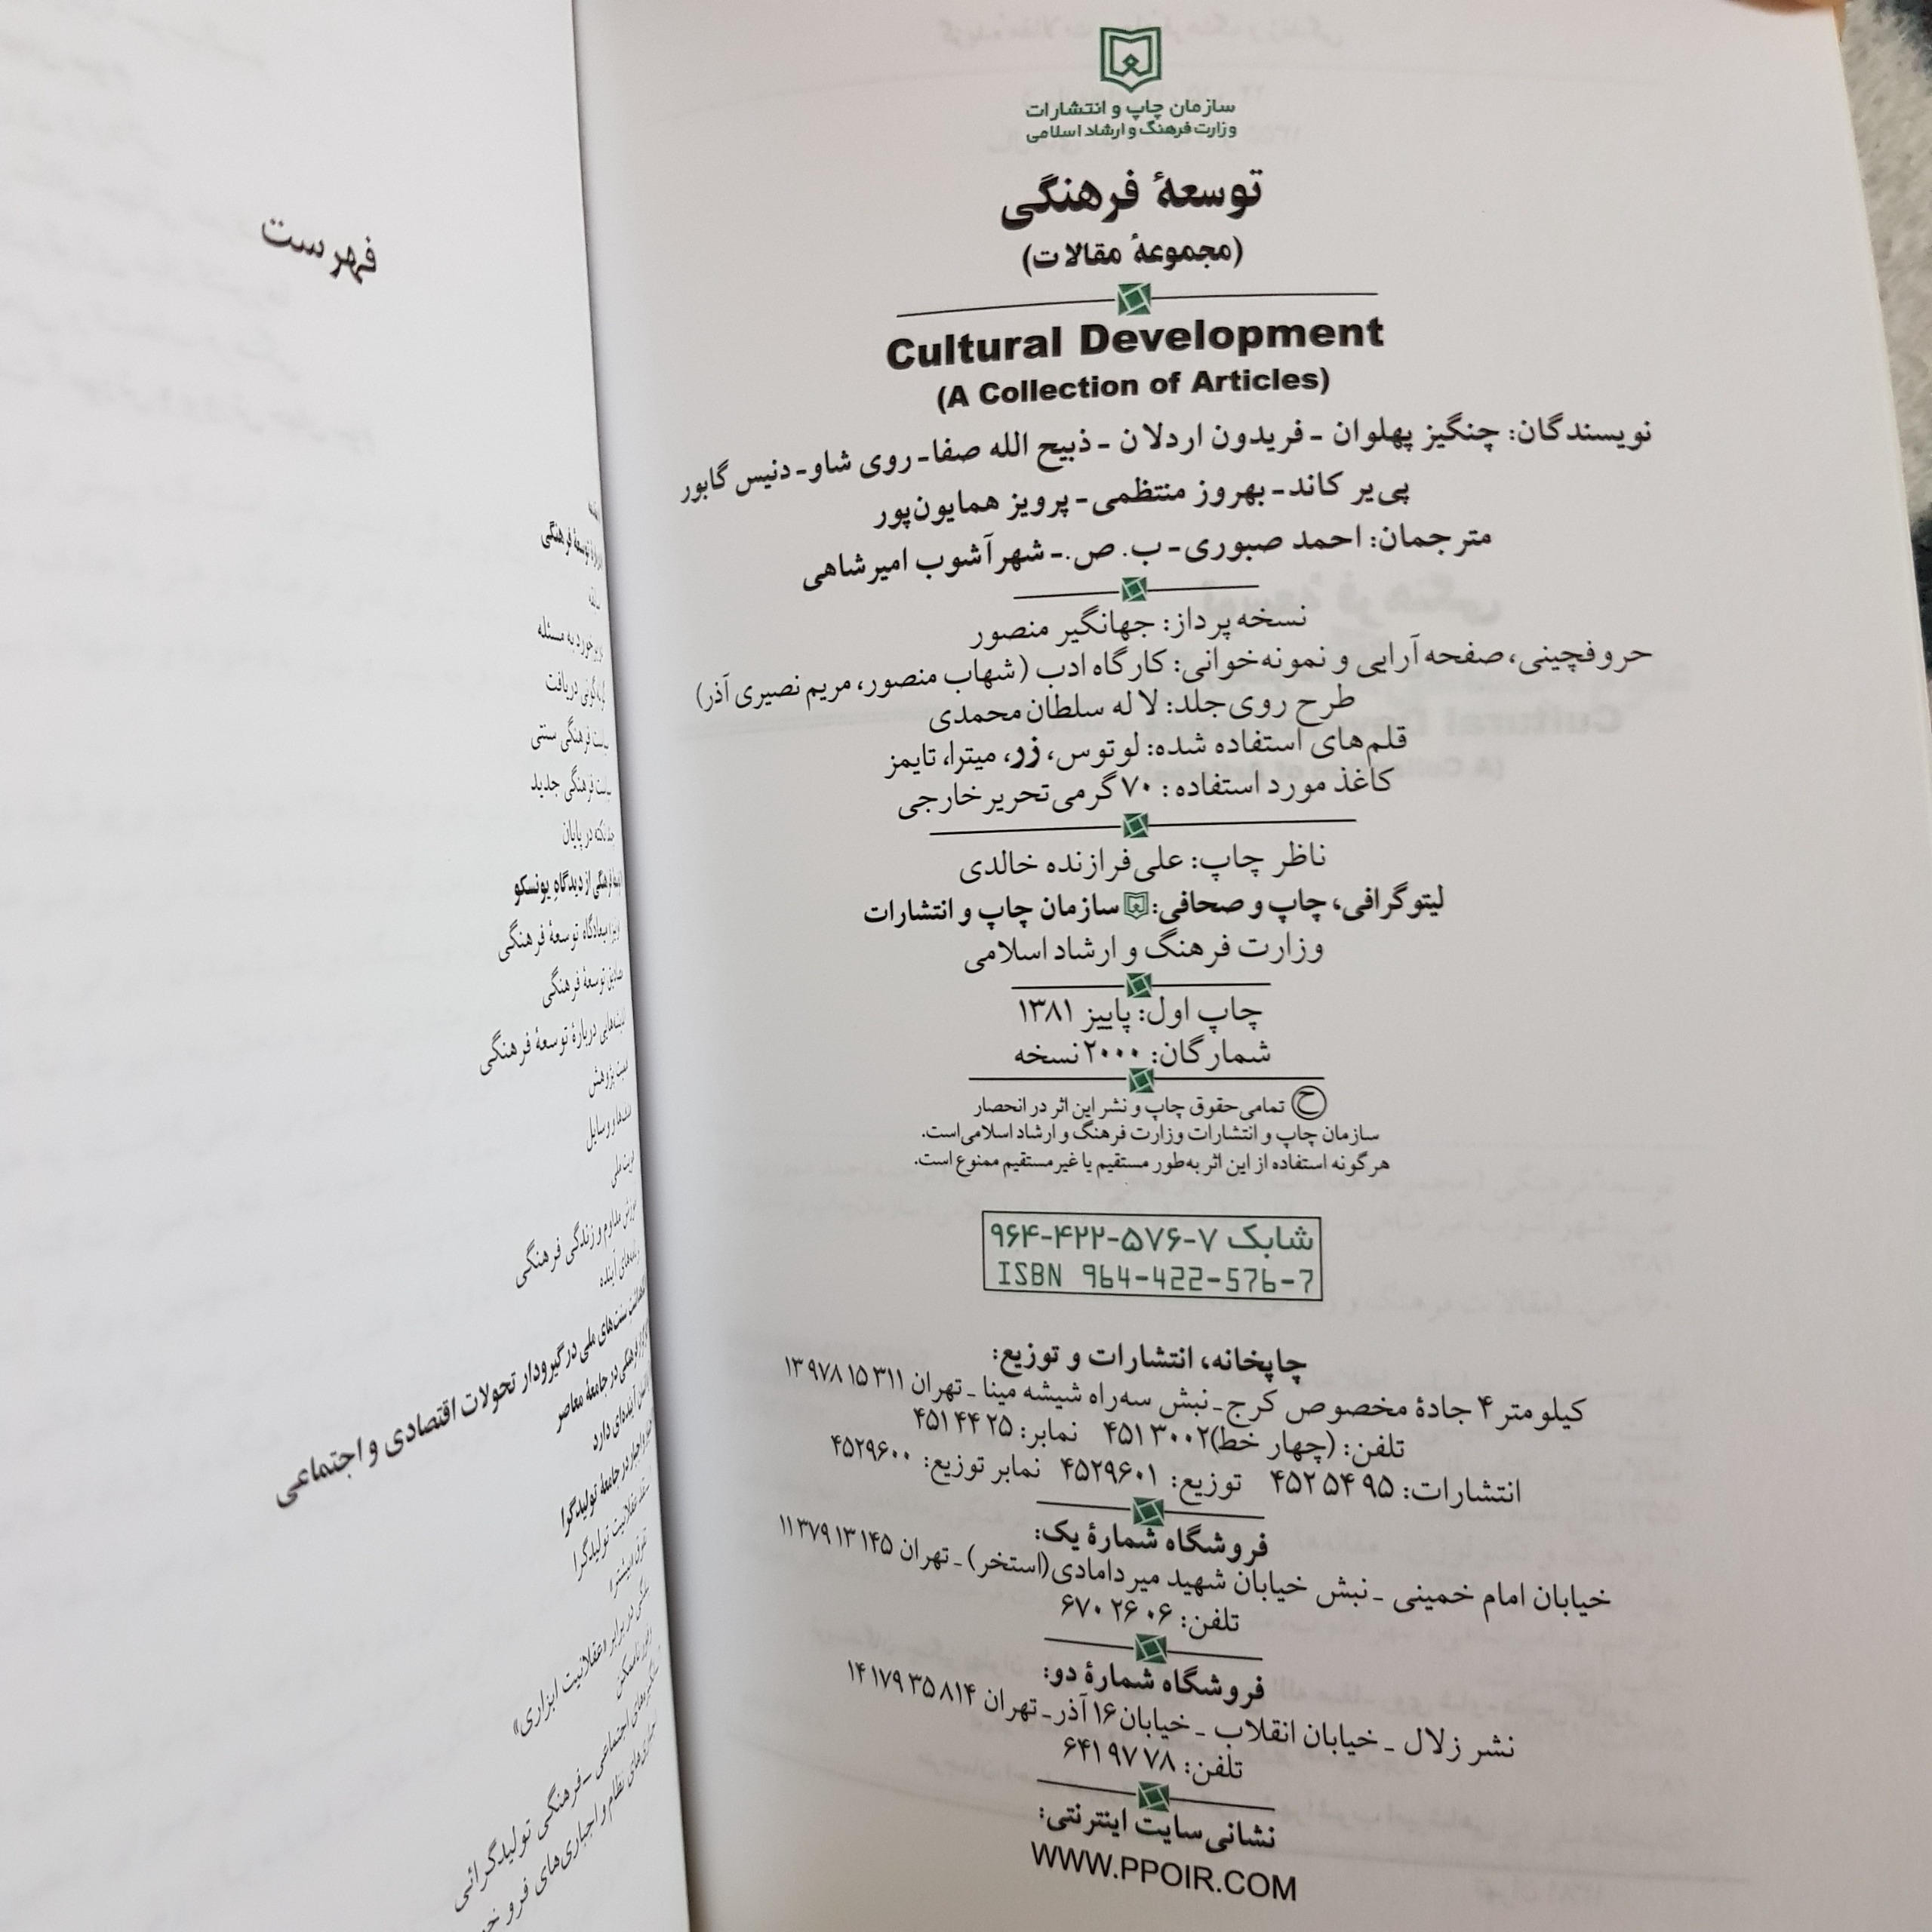 سازمان چاپ و انتشارات
وزارت فرهنگ و ارشاد اسلامی
توسعهٔ فرهنگی
(مجموعهٔ مقالات)
Cultural Development
(A Collection of Articles)
نویسندگان: چنگیز پهلوان ـ فریدون اردلان ـ ذبیح الله صفا ـ روی شاو ـ دنیس گابور
پی‌یر کاند ـ بهروز منتظمی ـ پرویز همایون‌پور
مترجمان: احمد صبوری ـ ب. ص. ـ شهرآشوب امیرشاهی
نسخه‌پرداز: جهانگیر منصور
حروفچینی، صفحه‌آرایی و نمونه‌خوانی: کارگاه ادب (شهاب منصور، مریم نصیری آذر)
طرح روی جلد: لاله سلطان‌محمدی
قلم‌های استفاده شده: لوتوس، زر، میترا، تایمز
کاغذ مورد استفاده: ۷۰ گرمی تحریر خارجی
ناظر چاپ: علی فرازنده خالدی
لیتوگرافی، چاپ و صحافی: سازمان چاپ و انتشارات
وزارت فرهنگ و ارشاد اسلامی
چاپ اول: پاییز ۱۳۸۱
شمارگان: ۲۰۰۰ نسخه
ح تمامی حقوق چاپ و نشر این اثر در انحصار
سازمان چاپ و انتشارات وزارت فرهنگ و ارشاد اسلامی است.
هرگونه استفاده از این اثر به‌طور مستقیم یا غیرمستقیم ممنوع است.
شابک ۷-۵۷۶-۴۲۲-۹۶۴
ISBN 964-422-576-7
چاپخانه، انتشارات و توزیع:
کیلومتر ۴ جادهٔ مخصوص کرج ـ نبش سه‌راه شیشه مینا ـ تهران ۳۱۱ ۱۵ ۱۳۹۷۸
تلفن: (چهار خط) ۴۵۱۳۰۰۲ نمابر: ۴۵۱۴۴۲۵
انتشارات: ۴۵۲۵۴۹۵ توزیع: ۴۵۲۹۶۰۱ نمابر توزیع: ۴۵۲۹۶۰۰
فروشگاه شمارهٔ یک:
خیابان امام خمینی ـ نبش خیابان شهید میردامادی (استخر) ـ تهران ۱۴۵ ۱۳ ۱۱۳۷۹
تلفن: ۶۷۰۲۶۰۶
فروشگاه شمارهٔ دو:
نشر زلال ـ خیابان انقلاب ـ خیابان ۱۶ آذر ـ تهران ۸۱۴ ۳۵ ۱۴۱۷۹
تلفن: ۶۴۱۹۷۷۸
نشانی سایت اینترنتی:
WWW.PPOIR.COM
فهرست
توسعهٔ فرهنگی
برخورد به مسئله
دریافت
فرهنگی سنتی
فرهنگی جدید
در پایان
فرهنگی از دیدگاه یونسکو
توسعهٔ فرهنگی
توسعهٔ فرهنگی
دربارهٔ توسعهٔ فرهنگی
پژوهش
و وسایل
مداوم و زندگی فرهنگی
آینده
سنت‌های ملی در گیرودار تحولات اقتصادی و اجتماعی
فرهنگی در جامعهٔ معاصر
آینده‌ای دارد
در جامعهٔ تولیدگرا
عقلانیت تولیدگرا
در برابر «عقلانیت ابزاری»
اجتماعی ـ فرهنگی تولیدگرائی
نظام و اجباری‌های